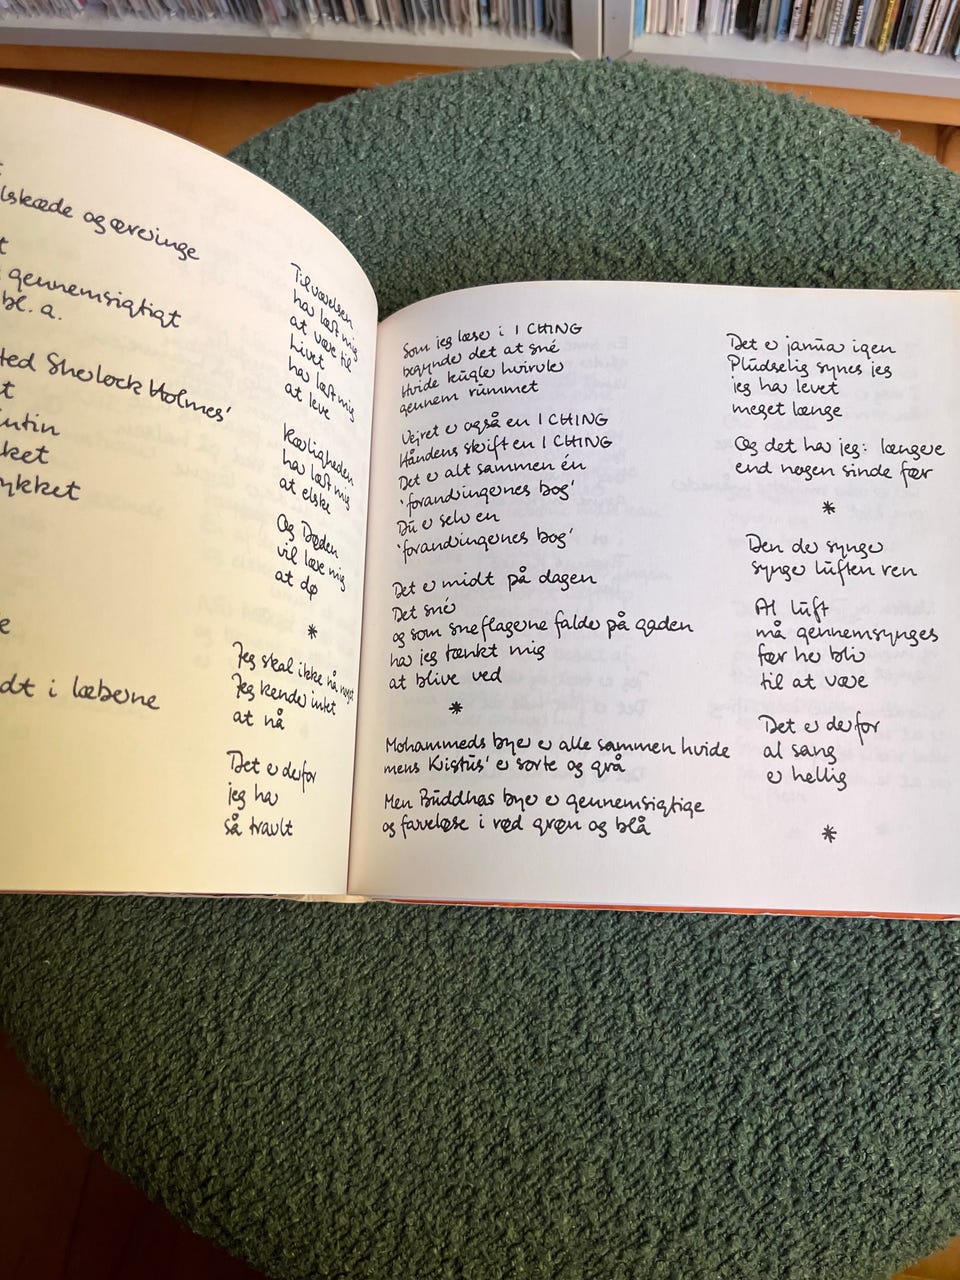 lskæde og øreringe
t
gennemsigtigt
bl. a.
ted Sherlock Holmes'
t
intin
ket
ykket
e
dt i læberne
Tilværelsen
har lært mig
at være til
Livet
har lært mig
at leve
Kærligheden
har lært mig
at elske
Og Døden
vil lære mig
at dø
*
Jeg skal ikke nå noget
Jeg kender intet
at nå
Det er derfor
jeg har
så travlt
Som jeg læser i I CHING
begynder det at sné
Hvide kugler hvirvler
gennem rummet
Vejret er også en I CHING
Håndens skrift en I CHING
Det er alt sammen én
'forandringernes bog'
Du er selv en
'forandringernes bog'
Det er midt på dagen
Det snér
og som sneflagerne falder på gaden
har jeg tænkt mig
at blive ved
*
Mohammeds byer er alle sammen hvide
mens Kristus' er sorte og grå
Men Buddhas byer er gennemsigtige
og farveløse i rød grøn og blå
Det er januar igen
Pludselig synes jeg
jeg har levet
meget længe
Og det har jeg: længere
end nogen sinde før
*
Den der synger
synger luften ren
Al luft
må gennemsynges
før her blir
til at være
Det er derfor
al sang
er hellig
*